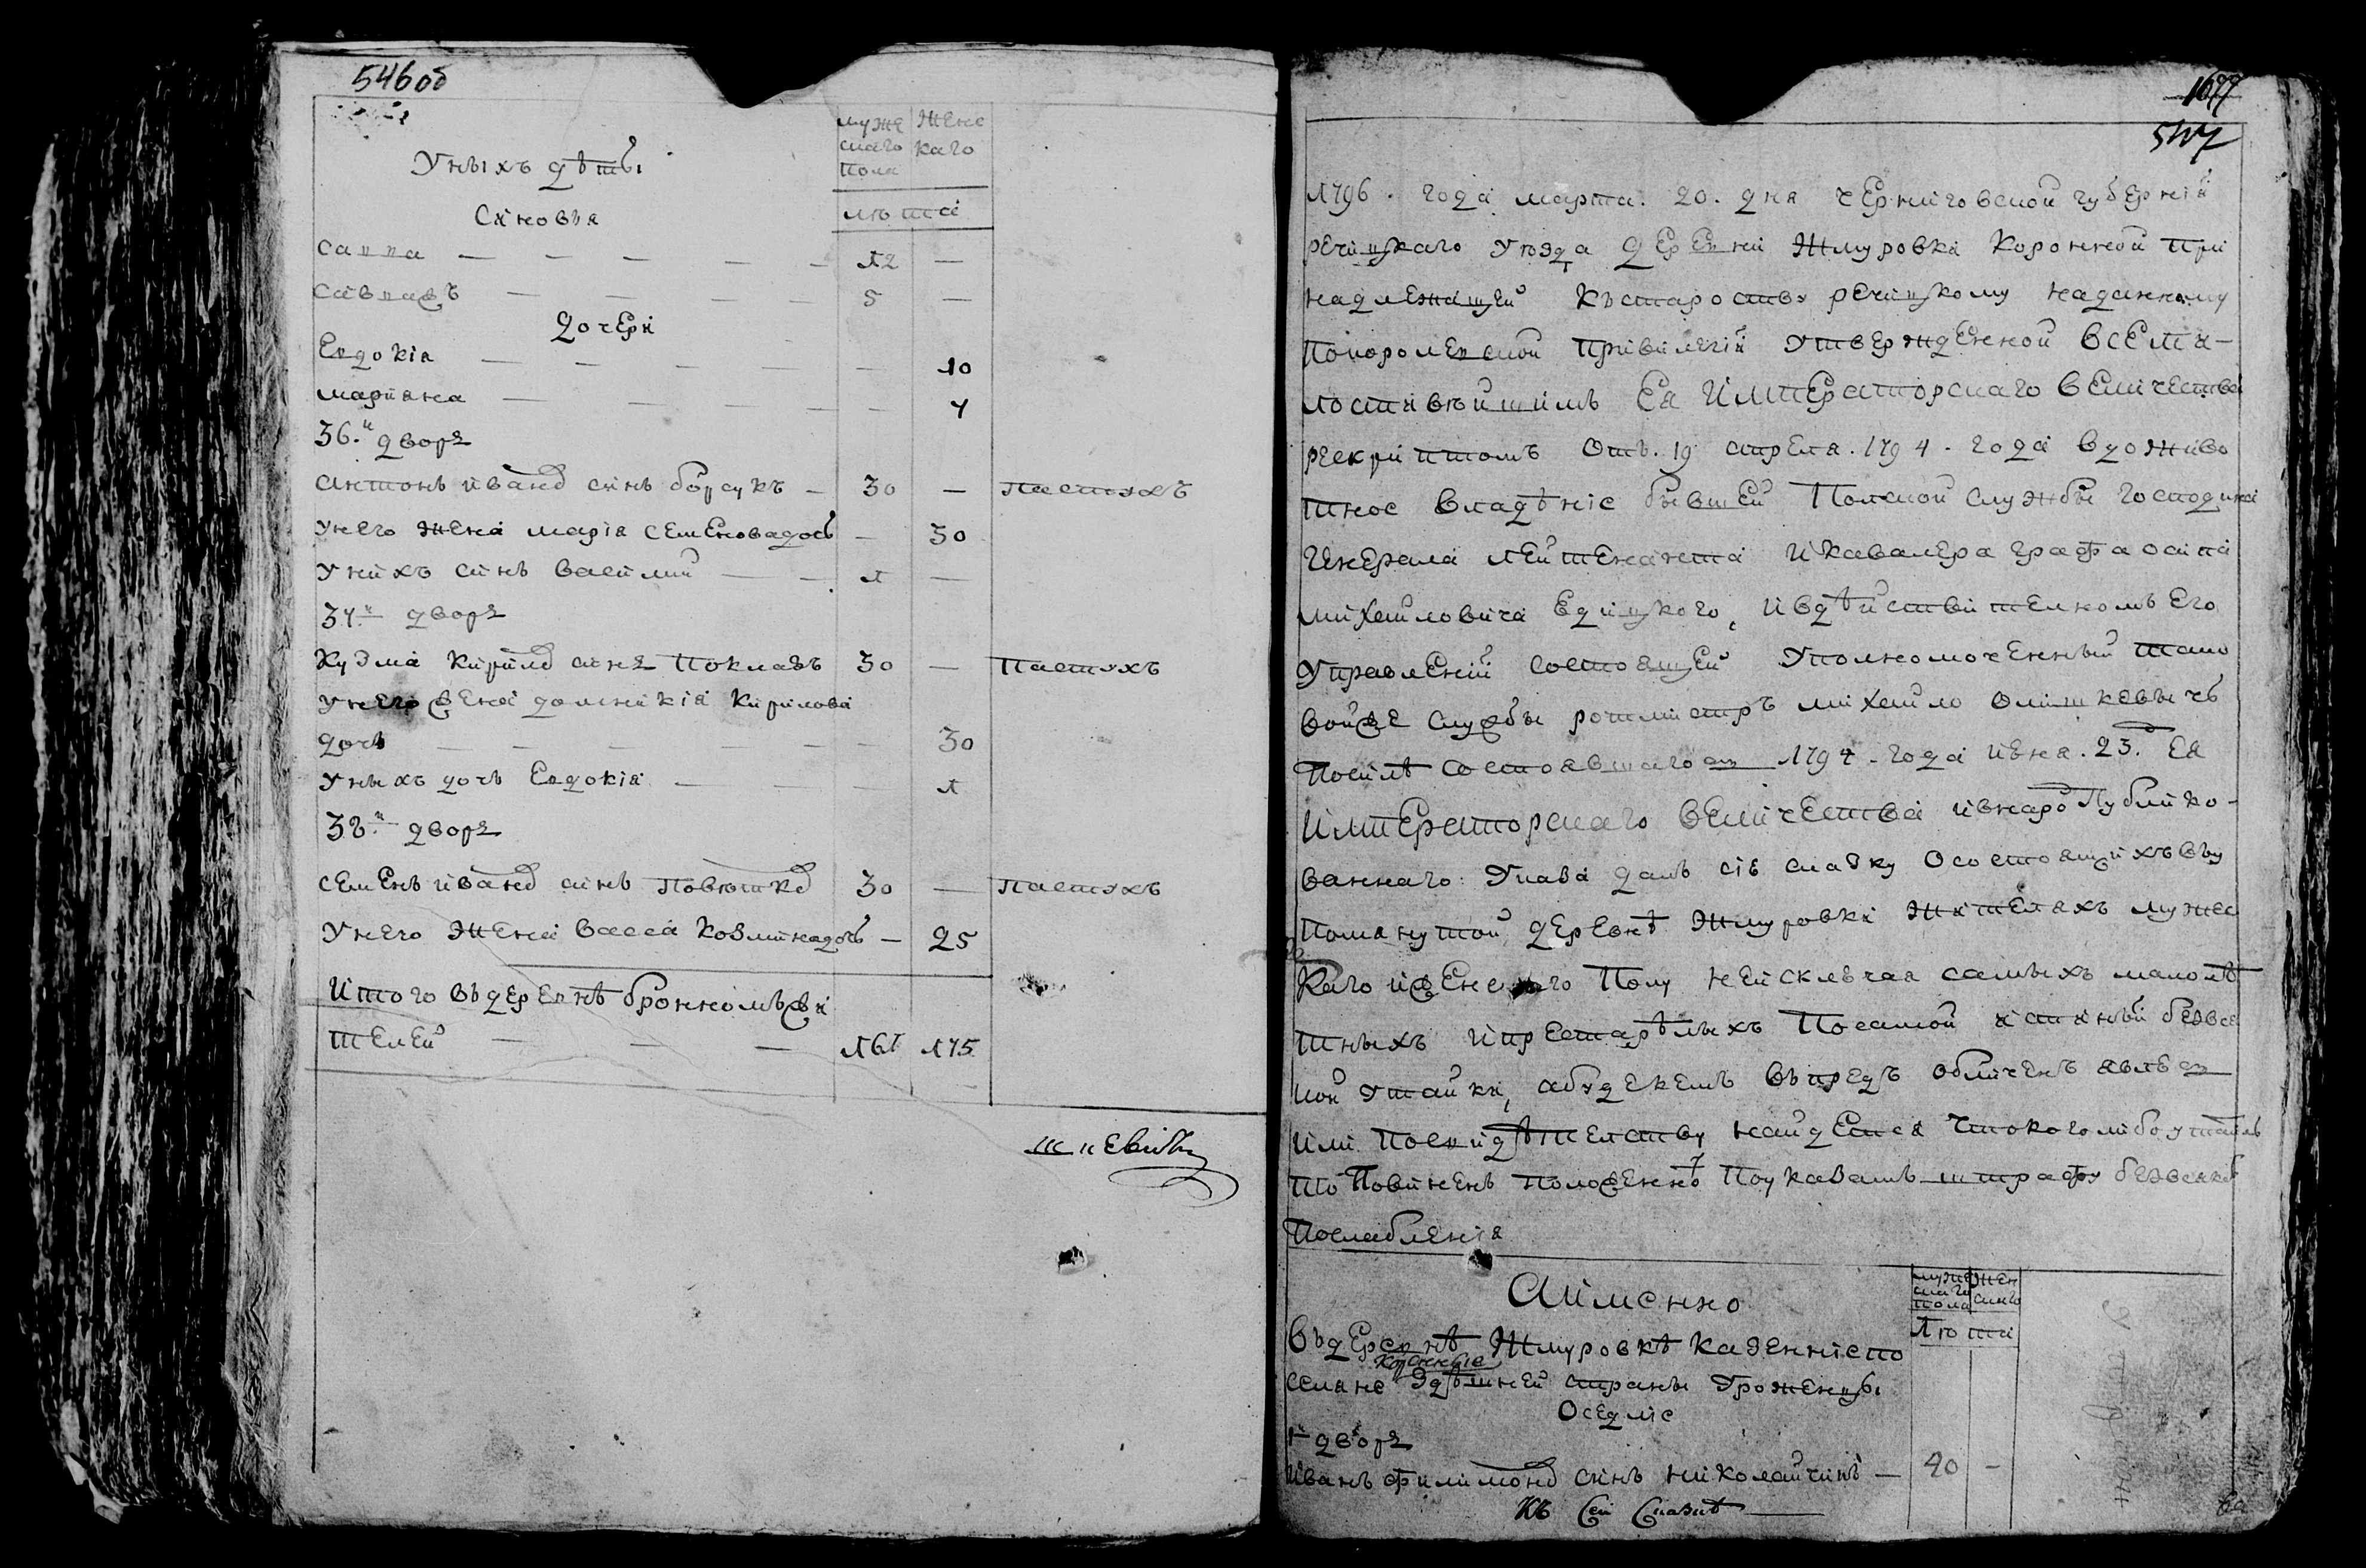 546об
муже
скаго
пола
женс
каго
лѣта
Уныхъ дѣты
Синовъя
Савка — — — — — 12 —
Сивлавъ — — — — 5 —
Дочери
Евдокіа — — — — — — 10
марияна — — — — — 4
36.й дворъ
Антонъ иванов синъ борсукъ — 30 — пастухъ
Унего жена маріа семеновадочь — 30
Унихъ синъ василий — — 1 —
37й дворъ
Кузма Кирилов синъ Поклавъ 30 — Пастухъ
Унего жена домникіа Кирилова
дочь — — — — — — 30
Уныхъ дочь Евдокіа — — — 1
38й дворъ
семенъ иванов синъ Повюшков 30 — Пастухъ
Унего жена васса Козминадочь — 25
Итого въдеревнѣ бронномъжи
телей — — — 161 175
1077
547
1796. года марта. 20. дня черниговской губерній
речицкаго уюзда деревни Жмуровки Коронной при
надлежащей къстароству речицкому наданному
покоролевской привилегій утвержденной всеми-
лостивѣйшимъ Ея Императорскаго величества
рескриптомъ отъ. 19 апреля. 1794. года вдоживо
тное владѣніе бывшей Полской службы господина
Генерала лейтенанта икавалера графа осипа
михайловича Едицкого, ивдѣйствителномъ его
управленій состоящей Уполномоченный тако
войже службы ротмистръ михайло олишкевычъ
посилѣ состоявшагося 1794. года июня. 23.го Ея
императорскаго величества ивнарод Публико-
ваннаго указа далъ сіе сказку осостоящихъввы
помянутой деревнѣ Жмуровки жителяхъ мужес
каго иженскаго полу неисключая самыхъ малолѣ
тныхъ ипрестарѣлыхъ Посамой истиный безвся
кой утайки, абуде кемъ впредъ обличенъ явлюсь
или посвидѣтелству найдется чтокоголибоутаилъ
то Повиненъ положенно Поуказамъ штрафу безвсякого
послабленія
Аименно
муже
скаго
пола
жен
скаго
лѣта
Въдеревнѣ Жмуровкѣ казенніепо
Коронные
селяне здѣшней страны уроженцы
Оседліе
1й дворъ
Иванъ филимонов синъ николайчикъ — 40 —
Къ сей сказкѣ